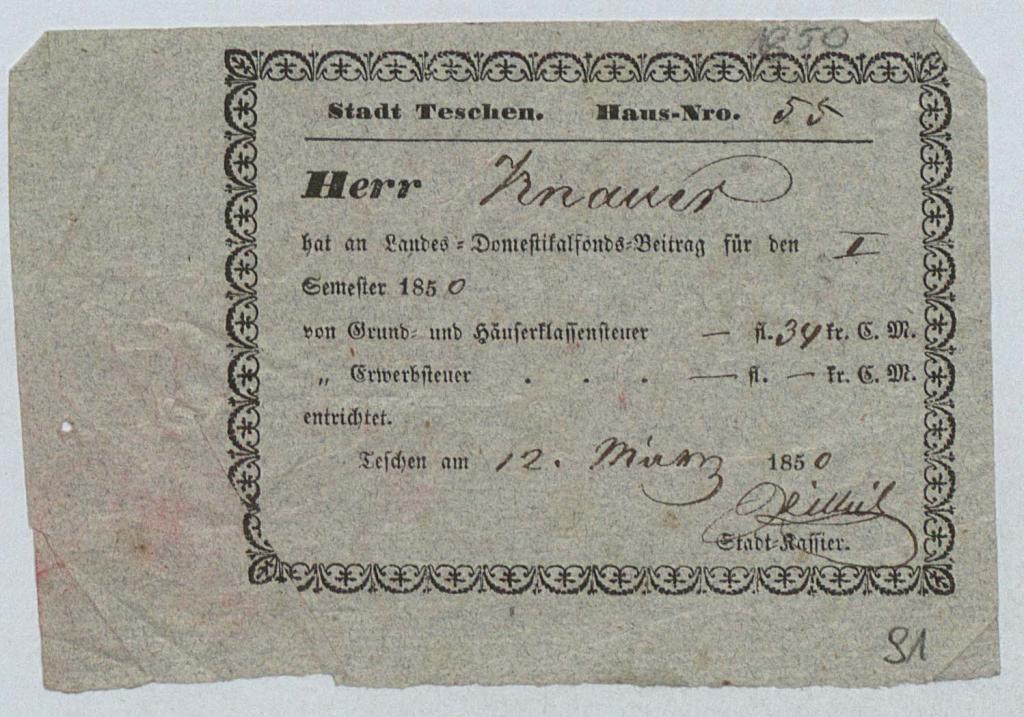 1850
Stadt Teschen. Haus-Nro. 55
Herr Knauer
hat an Landes-Domestikalfonds-Beitrag für den I
Semester 1850
von Grund- und Häuserklassensteuer — fl. 34 kr. C. M.
„ Erwerbsteuer . . . — fl. — kr. C. M.
entrichtet.
Teschen am 12. März 1850
Stadt-Kassier.
91